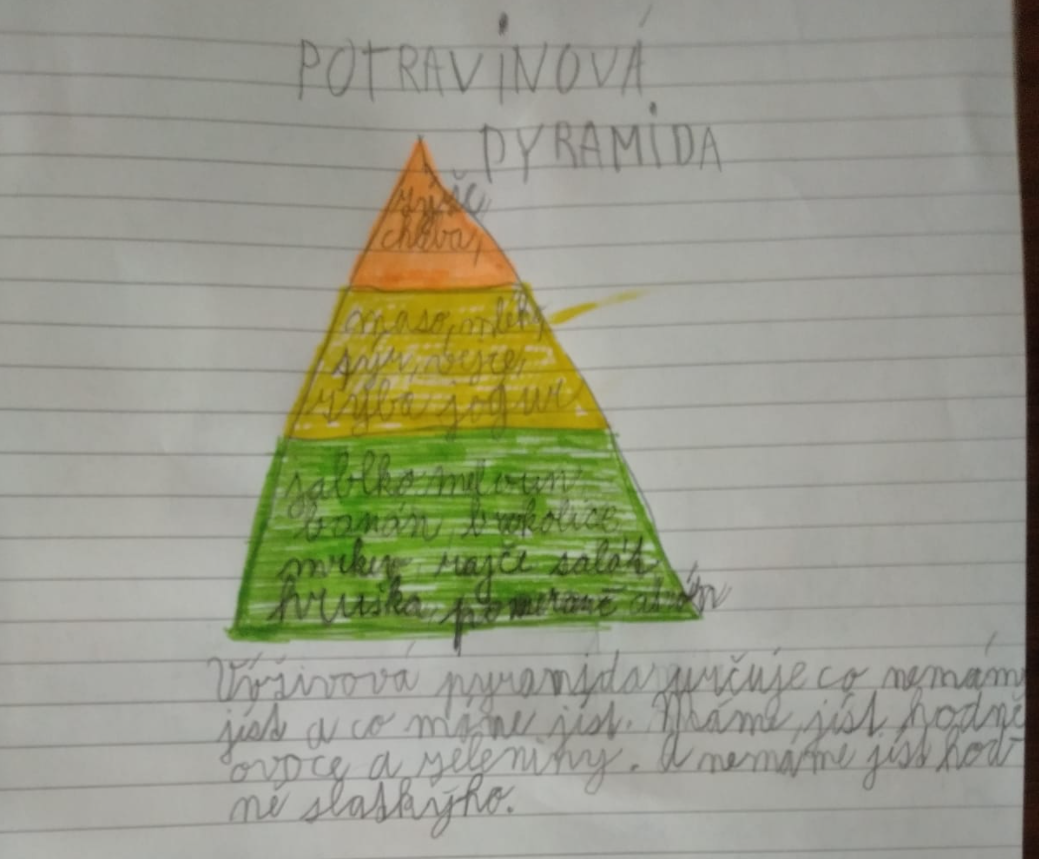 POTRAVINOVÁ
PYRAMIDA
rýže
chleba,
maso, mléko,
sýr, vejce,
ryba jogurt
jablko meloun
banán, brokolice
mrkev, rajče salát
hruška, pomeranč
Výživová pyramida určuje co nemáme
jíst a co máme jíst. Máme jíst hodně
ovoce a zeleniny. A nemáme jíst hod-
ně slatkýho.